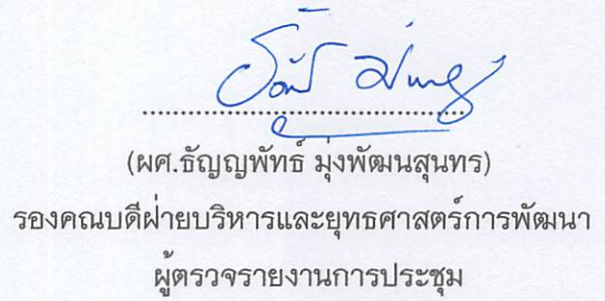 (ผศ.ธัญญพัทธ์ มุ่งพัฒนสุนทร)
รองคณบดีฝ่ายบริหารและยุทธศาสตร์การพัฒนา
ผู้ตรวจรายงานการประชุม